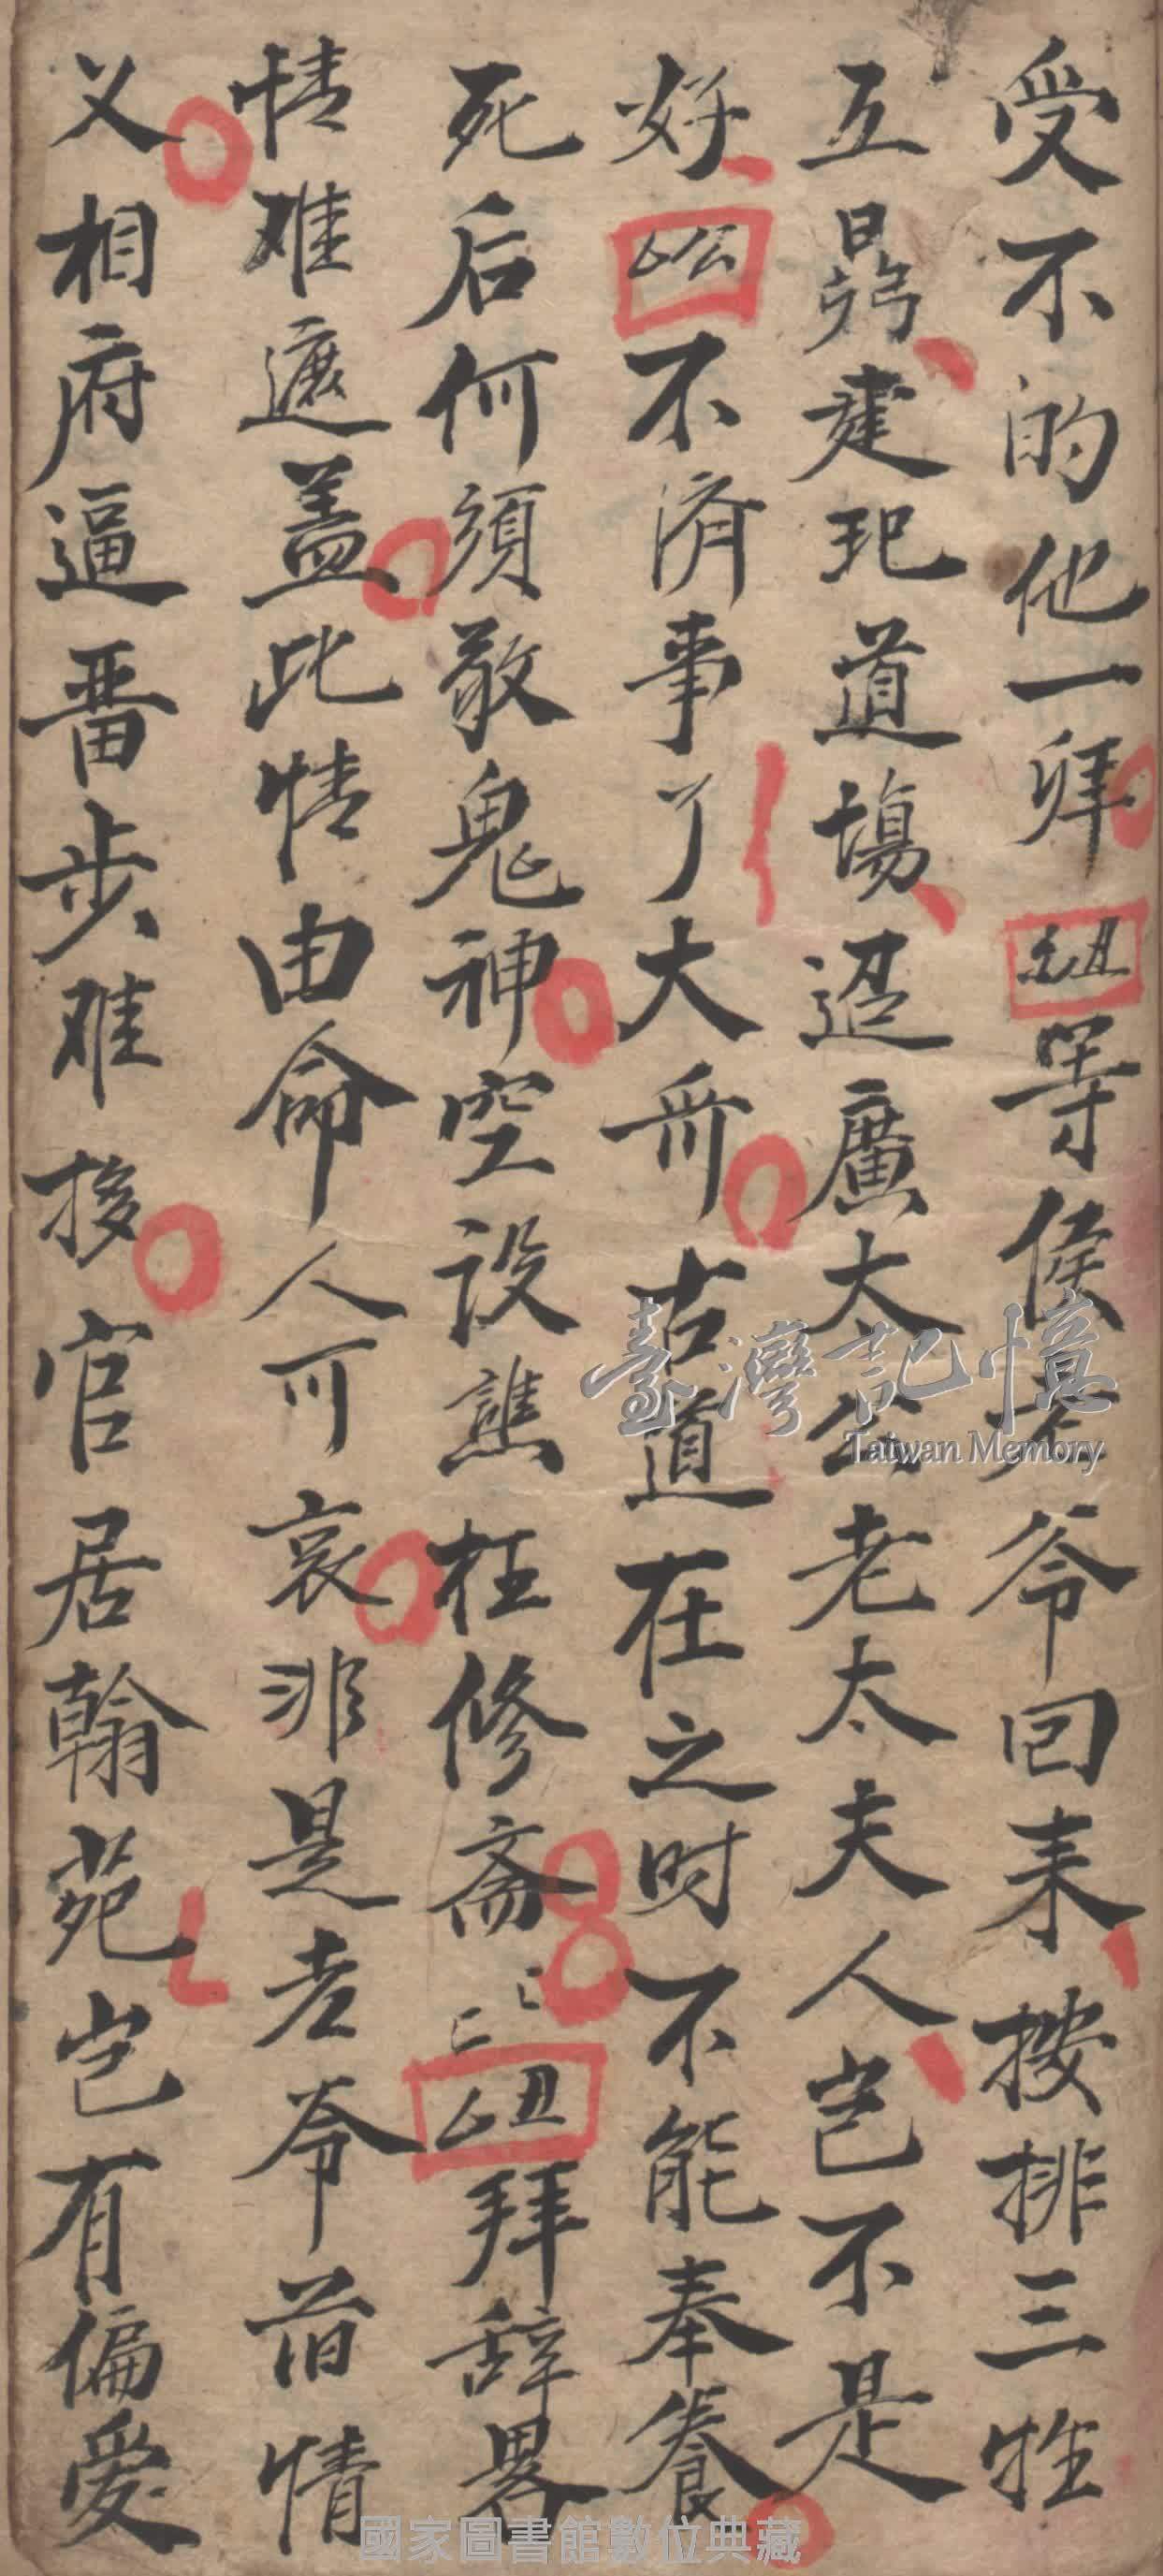 受不的他一拜丑等候老爷回来按排三牲
五鼎建圯道場迢廣太公老太夫人岂不是
好公不濟事了大哥古道在之时不能奉養
死后何須敬鬼神空設譙枉修斋丑拜辞畧
情难遮盖此情由命人可哀非是老爷苗情
义相府逼番步难挨官居翰苑岂有偏爱
臺灣記憶
Taiwan Memory
國家圖書館數位典藏